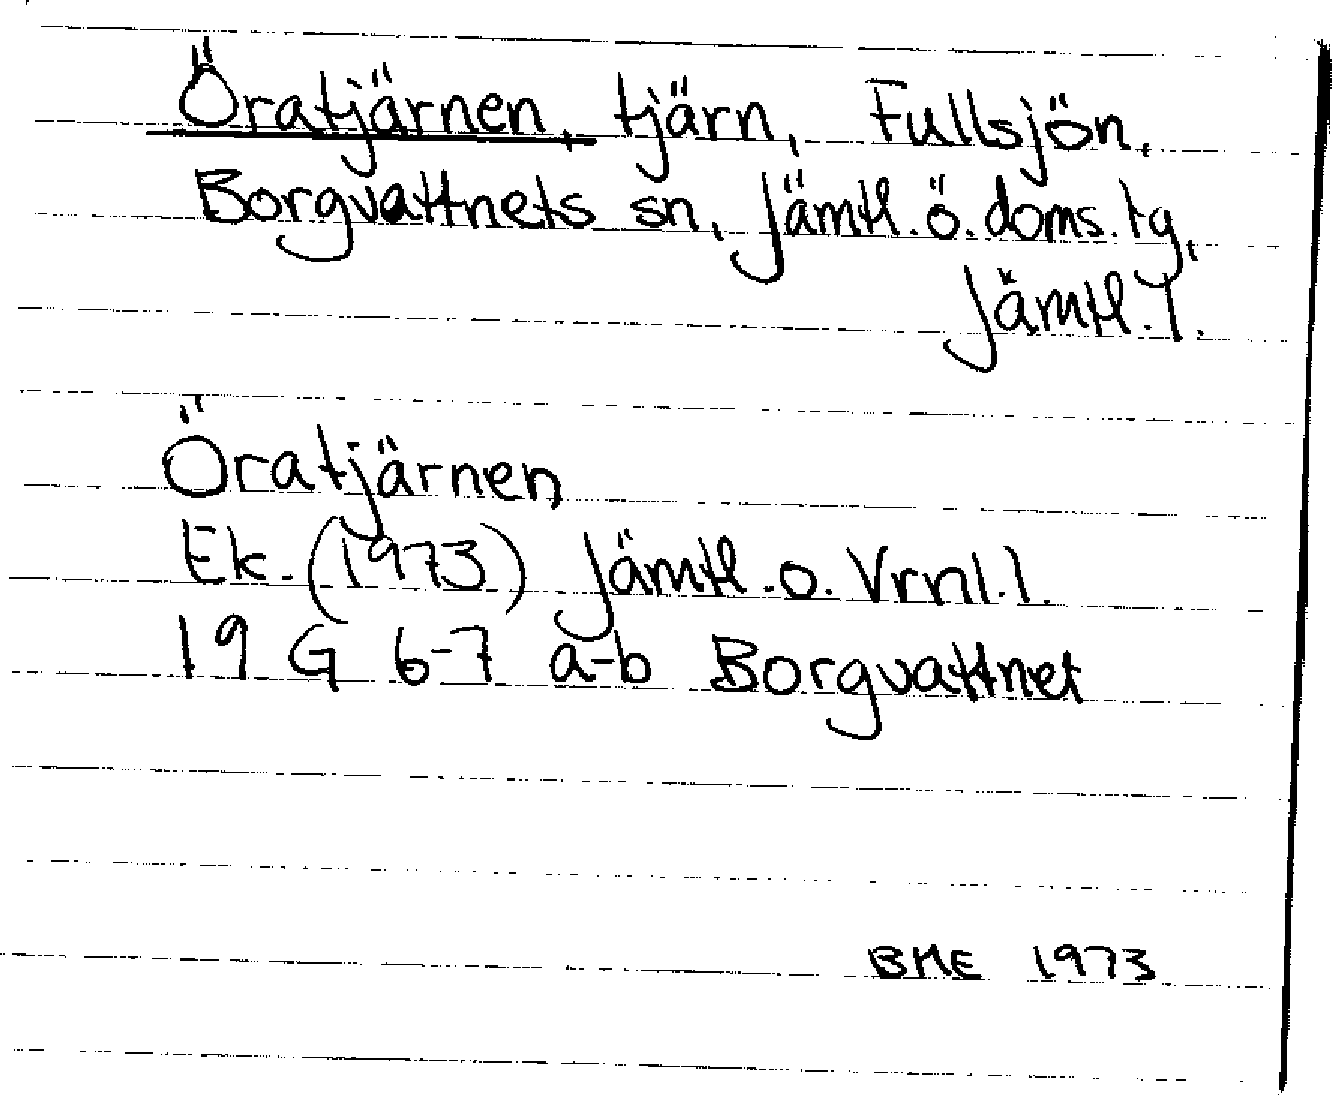 Öratjärnen, tjärn, Fullsjön,
Borgvattnets sn, Jämtl.ö.doms.tg,
Jämtl.l.
Öratjärnen
Ek. (1973) Jämtl.o.Vrnl.l.
19 G 6-7 a-b Borgvattnet
BME 1973